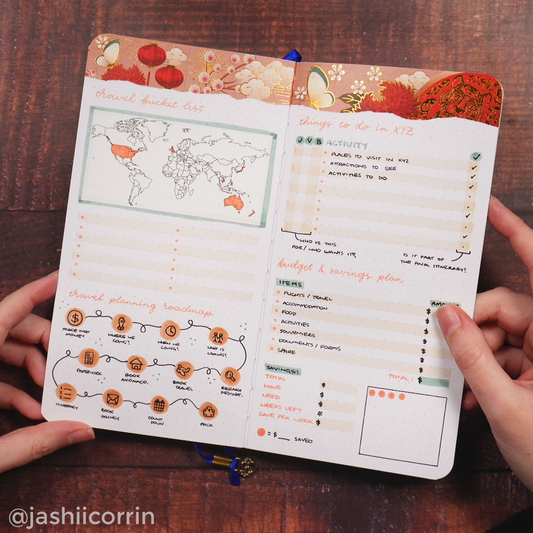 travel bucket list
travel planning roadmap
$
MAKE THAT
MONEY
WHERE WE
GOING?
WHEN WE
GOING?
WHO IS
GOING?
PAPERWORK
BOOK
ACCOMMOD.
BOOK
TRAVEL
RESEARCH
ITINERARY
BOOK
THINGS
COUNT
DOWN
PACK
things to do in XYZ
J V B ACTIVITY ✓
PLACES TO VISIT IN XYZ ✓
ATTRACTIONS TO SEE ✓
ACTIVITIES TO DO ✓
✓
✓
✓
✓
✓
WHO IS THIS
FOR/WHO WANTS IT?
IS IT PART OF
THE FINAL ITINERARY?
budget & savings plan
ITEMS
FLIGHTS / TRAVEL $
ACCOMMODATION $
FOOD $
ACTIVITIES $
SOUVENIERS $
DOCUMENTS / FORMS $
SPARE $
TOTAL: $
SAVINGS:
TOTAL $
HAVE $
NEED $
WEEKS LEFT #
SAVE PER WEEK $
= $___ SAVED
@jashiicorrin